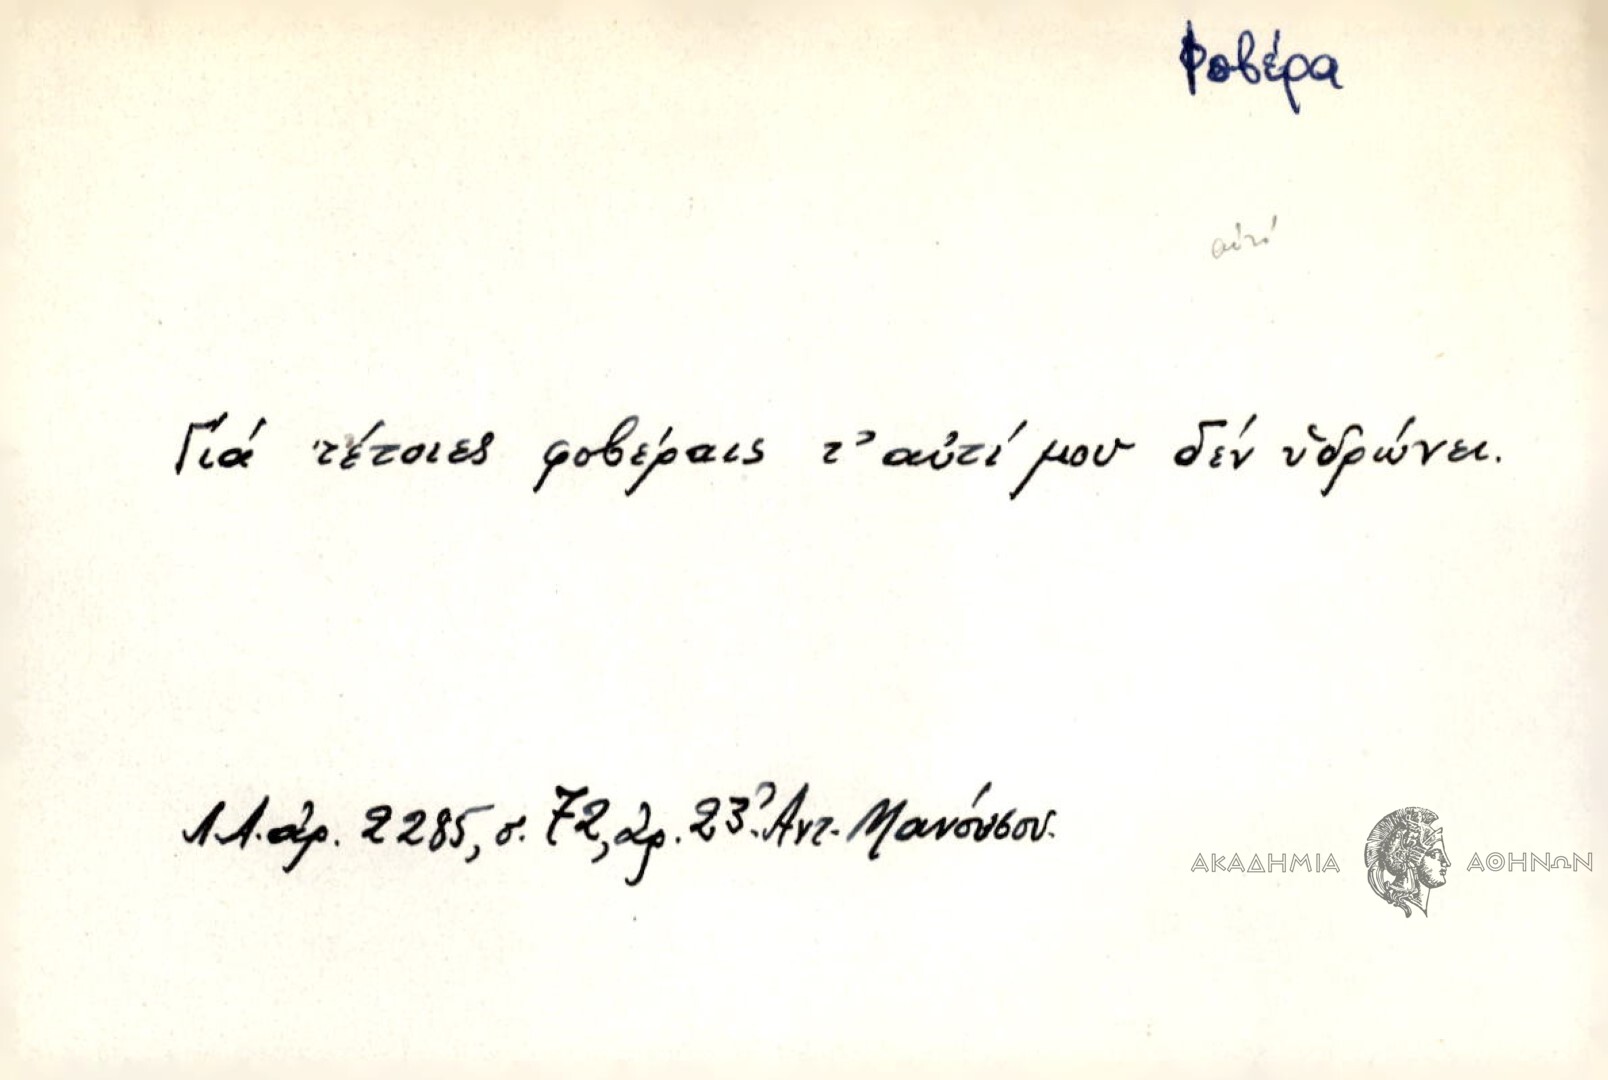 Φοβέρα
αὐτί
Γιά τέτοιες φοβέραις τ' αὐτί μου δέν ὑδρώνει.
Λ.Α. ἀρ. 2285, σ. 72, ἀρ. 23. Ἀντ. Μανούσου.
ΑΚΑΔΗΜΙΑ ΑΘΗΝΩΝ